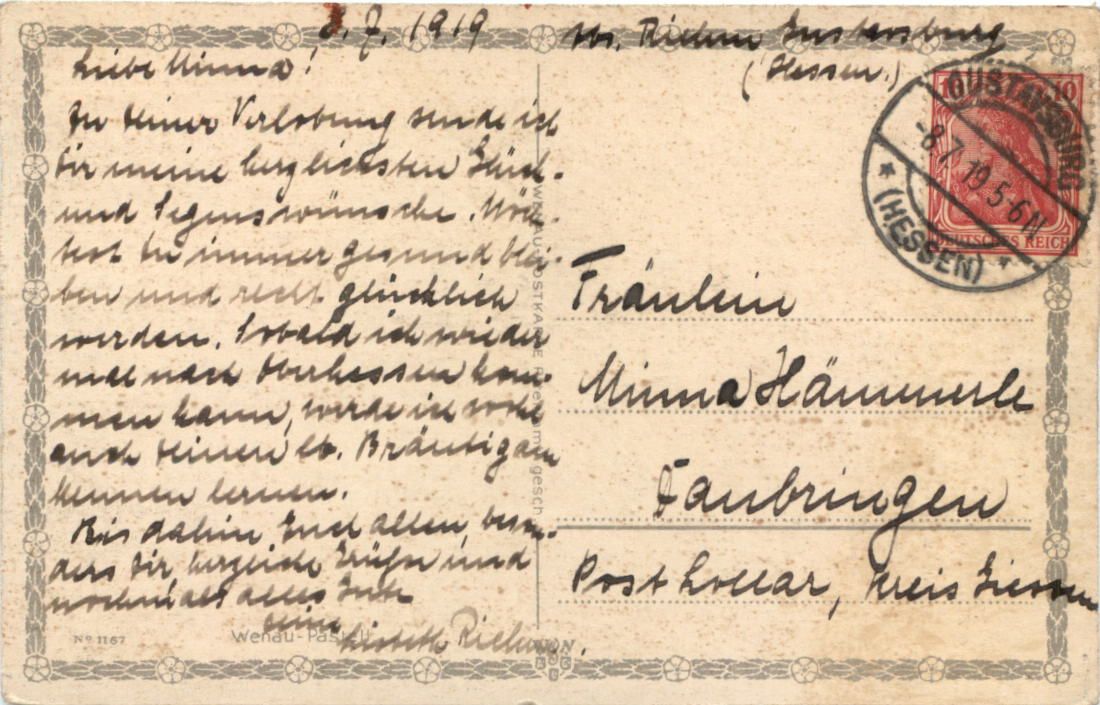 8.7.1919
Abs. Riehm Gustavsburg
(Hessen.)
Liebe Minna!
Zu Deiner Verlobung sende ich
Dir meine herzlichsten Glück-
und Segenswünsche. Möch-
test Du immer gesund blei-
ben und recht glücklich
werden. Sobald ich wieder
mal nach Oberhessen kom-
men kann, werde ich wohl
auch Deinen lb. Bräutigam
kennen lernen.
Bis dahin Euch allen, beson-
ders Dir, herzliche Grüße und
nochmals alles Gute
Deine
Lisbeth Riehm.
Fräulein
Minna Hämmerle
Daubringen
Post Lollar, Kreis Giessen
GUSTAVSBURG
-8.7.19.5-6N
* (HESSEN) *
10 10
DEUTSCHES REICH
WENAU-POSTKARTE
gesch
No 1167
Wenau-Pastell